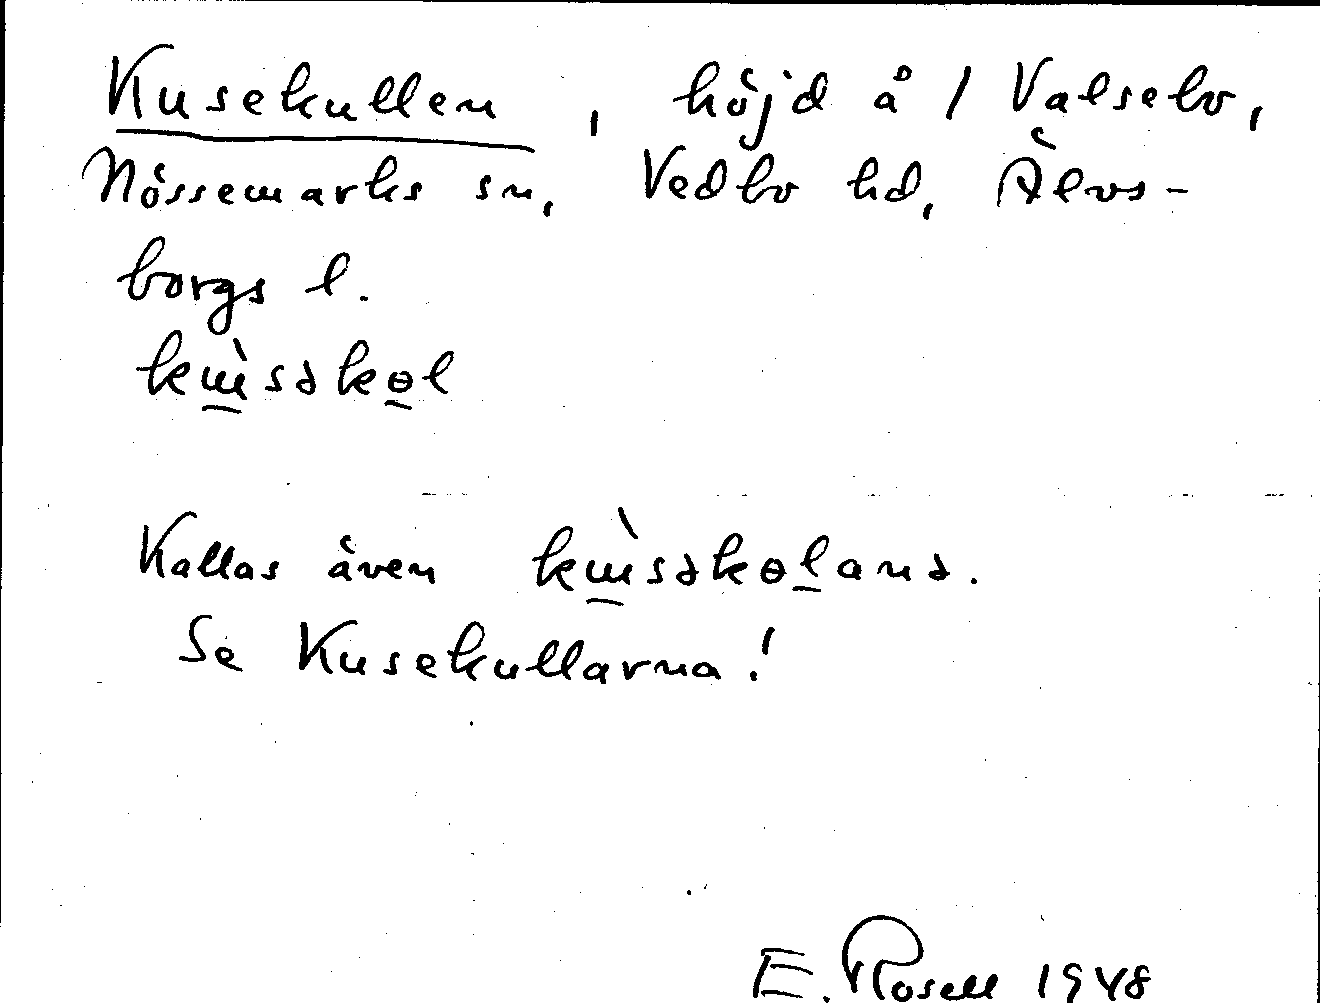 Kusekullen, höjd å 1 Valsebo,
Nössemarks sn, Vedbo hd, Älvs-
borgs l.
kɯ̠̀səkɵ̠l
Kallas även kɯ̠̀səkɵl̠anə.
Se Kusekullarna!
E. Rosell 1948